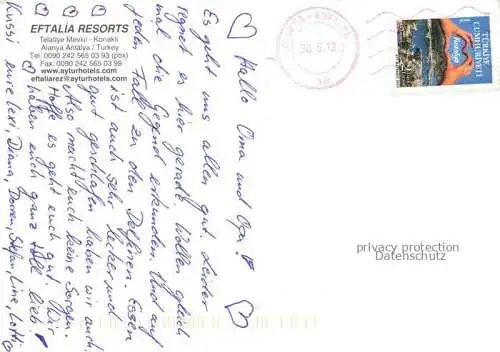 EFTALIA RESORTS
Telatiye Mevkii - Konaklı
Alanya Antalya / Turkey
Tel: 0090 242 565 03 93 (pbx)
Fax: 0090 242 565 03 99
www.ayturhotels.com
eftaliarez@ayturhotels.com
Hallo Oma und Opa!
Es geht uns allen gut. Leider
regnet es hier gerade. Wollen gleich
mal die Gegend erkunden. Und auf
jeden Fall zu den Delfinen. Essen
ist auch sehr lecker und
gut geschlafen haben wir auch.
Also macht euch keine Sorgen.
Hoffe es geht euch gut. Wir
haben euch ganz doll lieb!
Kussi eure Lexi, Diana, Darren, Stefan, Line, Lotti
30.5.12
TÜRKİYE
CUMHURİYETİ
Antalya
privacy protection
Datenschutz